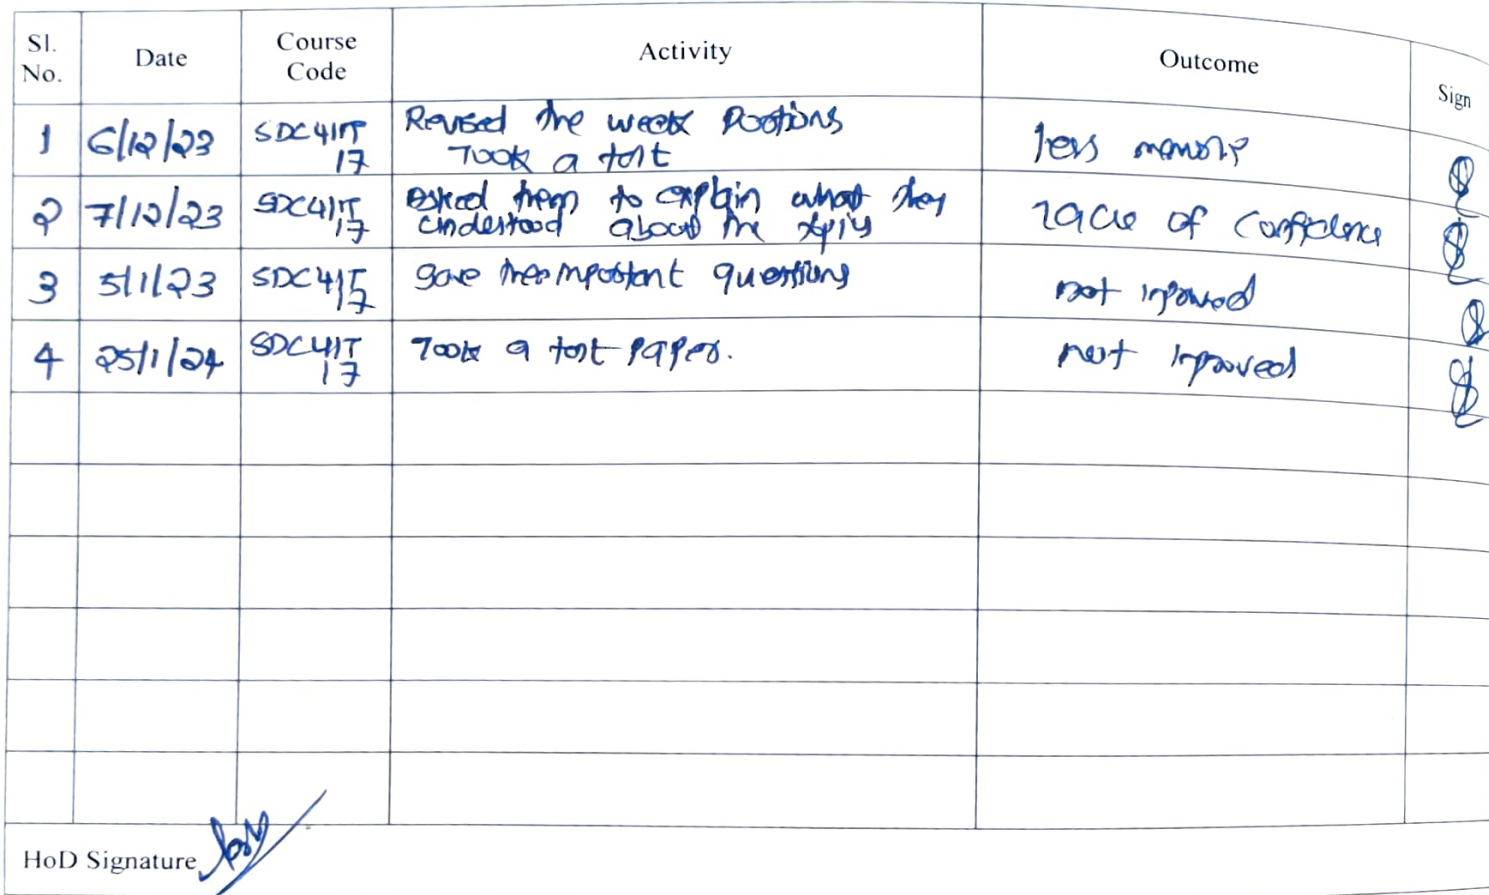 Sl. No.
Date
Course Code
Activity
Outcome
Sign
1
6/12/23
SDC4IT
17
Revised the week Portions
Took a test
less memory
2
7/12/23
SDC4IT
17
asked them to explain what they
understood about the
lack of Confidence
3
5/1/23
SDC4IT
17
gave important questions
not improved
4
25/1/24
SDC4IT
17
Took a test paper.
not improved
HoD Signature